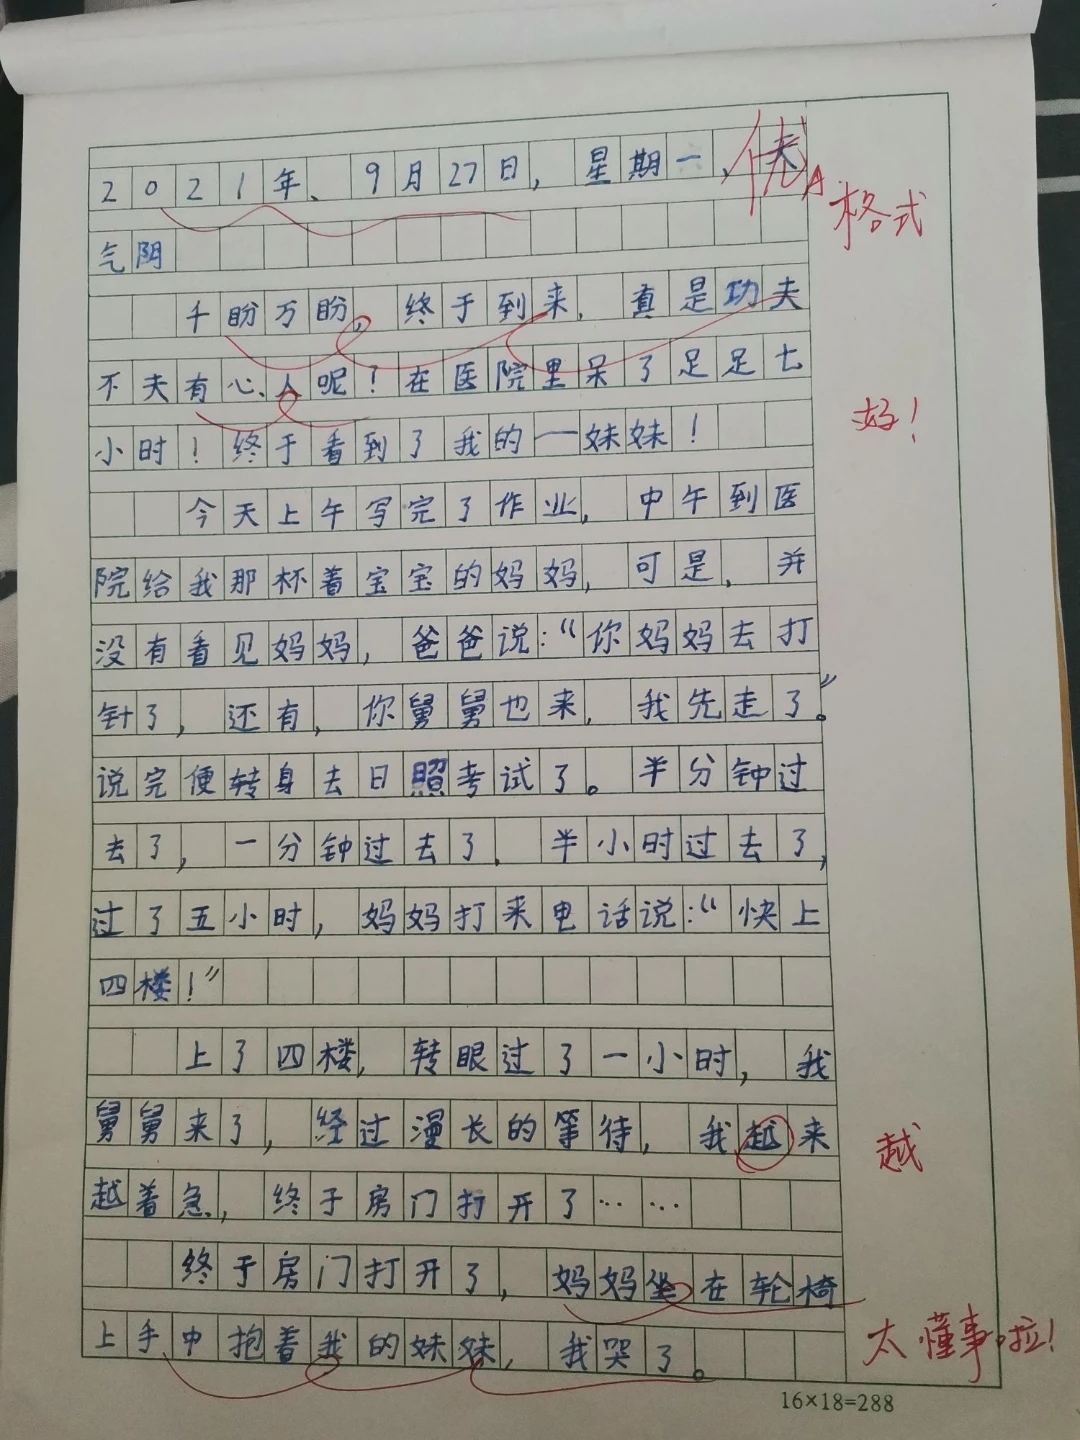 2021年、9月27日，星期一、天
优A
格式
气阴
千盼万盼，终于到来，真是功夫
不夫有心、人呢！在医院里呆了足足七
好！
小时！终于看到了我的一妹妹！
今天上午写完了作业，中午到医
院给我那杯着宝宝的妈妈，可是，并
没有看见妈妈，爸爸说：“你妈妈去打
针了，还有，你舅舅也来，我先走了。”
说完便转身去日照考试了。半分钟过
去了，一分钟过去了，半小时过去了，
过了五小时，妈妈打来电话说：“快上
四楼！”
上了四楼，转眼过了一小时，我
舅舅来了，经过漫长的等待，我越来
越
越着急，终于房门打开了……
终于房门打开了，妈妈坐在轮椅
上手中抱着我的妹妹，我哭了。
太懂事啦！
16×18=288